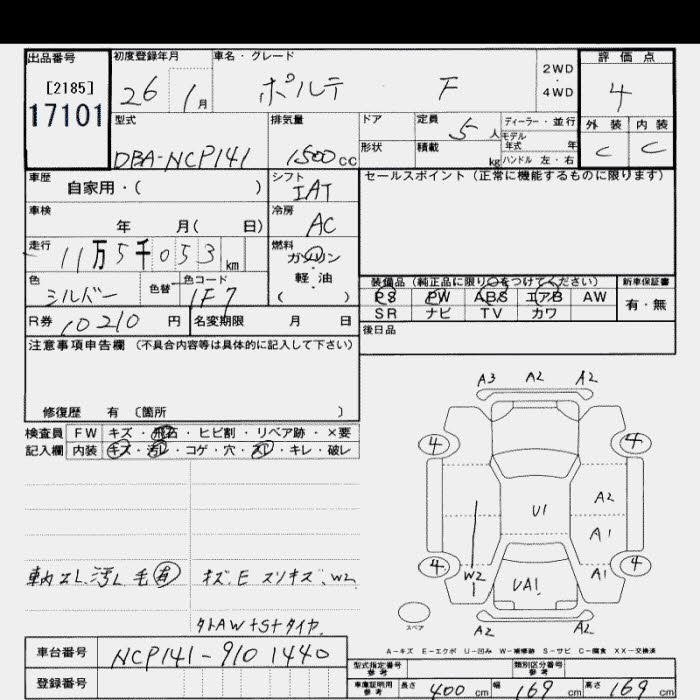 出品番号 初度登録年月 車名・グレード 評価点
[2185] 26 1月 ポルテ F 2WD・4WD 4
17101
型式 排気量 ドア 定員 5人 ディーラー・並行 外装 内装
DBA-NCP141 1500cc 形状 積載 kg モデル年式 年 C C
ハンドル 左・右
車歴 自家用・( ) シフト IAT セールスポイント(正常に機能するものに限ります)
車検 年 月( 日) 冷房 AC
走行 11万5千053km 燃料 ガソリン・軽油 ( )
色 シルバー 色替 色コード 1F7
装備品(純正品に限り○をつけてください) 新車保証書
PS PW ABS エアB AW 有・無
SR ナビ TV カワ
R券 10210円 名変期限 月 日 後日品
注意事項申告欄 (不具合内容等は具体的に記入して下さい)
修復歴 有 (箇所 )
検査員 FW キズ・飛石・ヒビ割・リペア跡・×要
記入欄 内装 キズ・汚レ・コゲ・穴・スレ・キレ・破レ
A3 A2 A2
4 4
A2
U1
A1
4 4
W2 A1
1
UA1
スペア A2 A2
車内スレ、汚レ 毛有 キズ、E スリキズ、W2
タトAW+S+タイヤ
A-キズ E-エクボ U-凹み W-補修跡 S-サビ C-腐食 XX-交換済
車台番号 NCP141-9101440
登録番号
型式指定番号 参考 類別区分番号 参考
車庫証明用 参考 長さ 400cm 幅 169cm 高さ 169cm